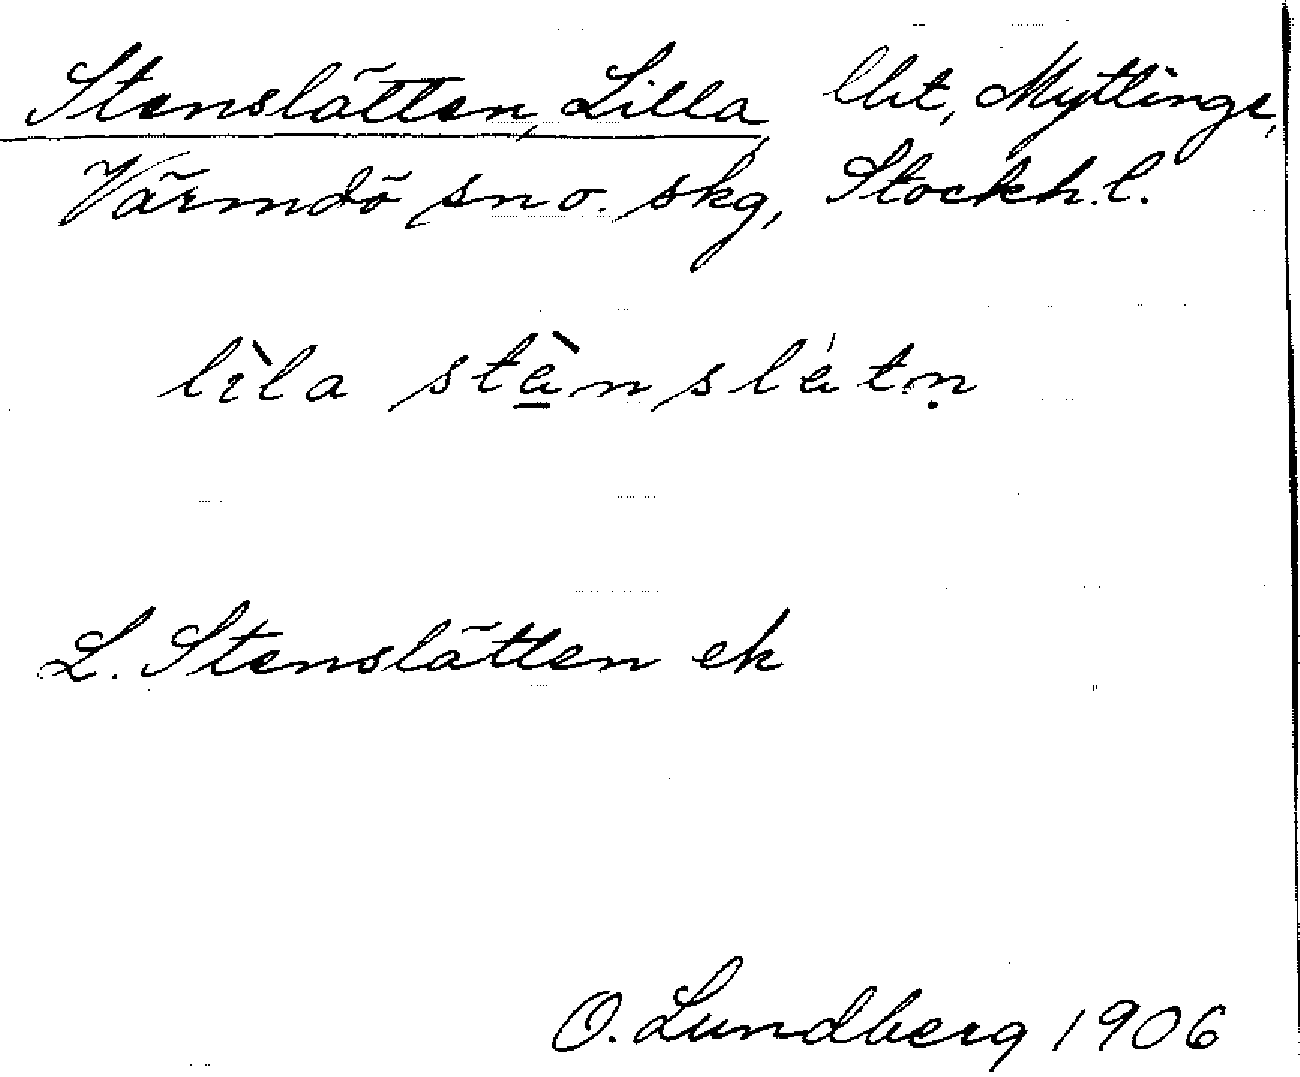 Stenslätten, Lilla, lht, Myttinge,
Värmdö sn o. skg, Stockh. l.
lìla stè̠nslétṇ
L. Stenslätten ek
O. Lundberg 1906